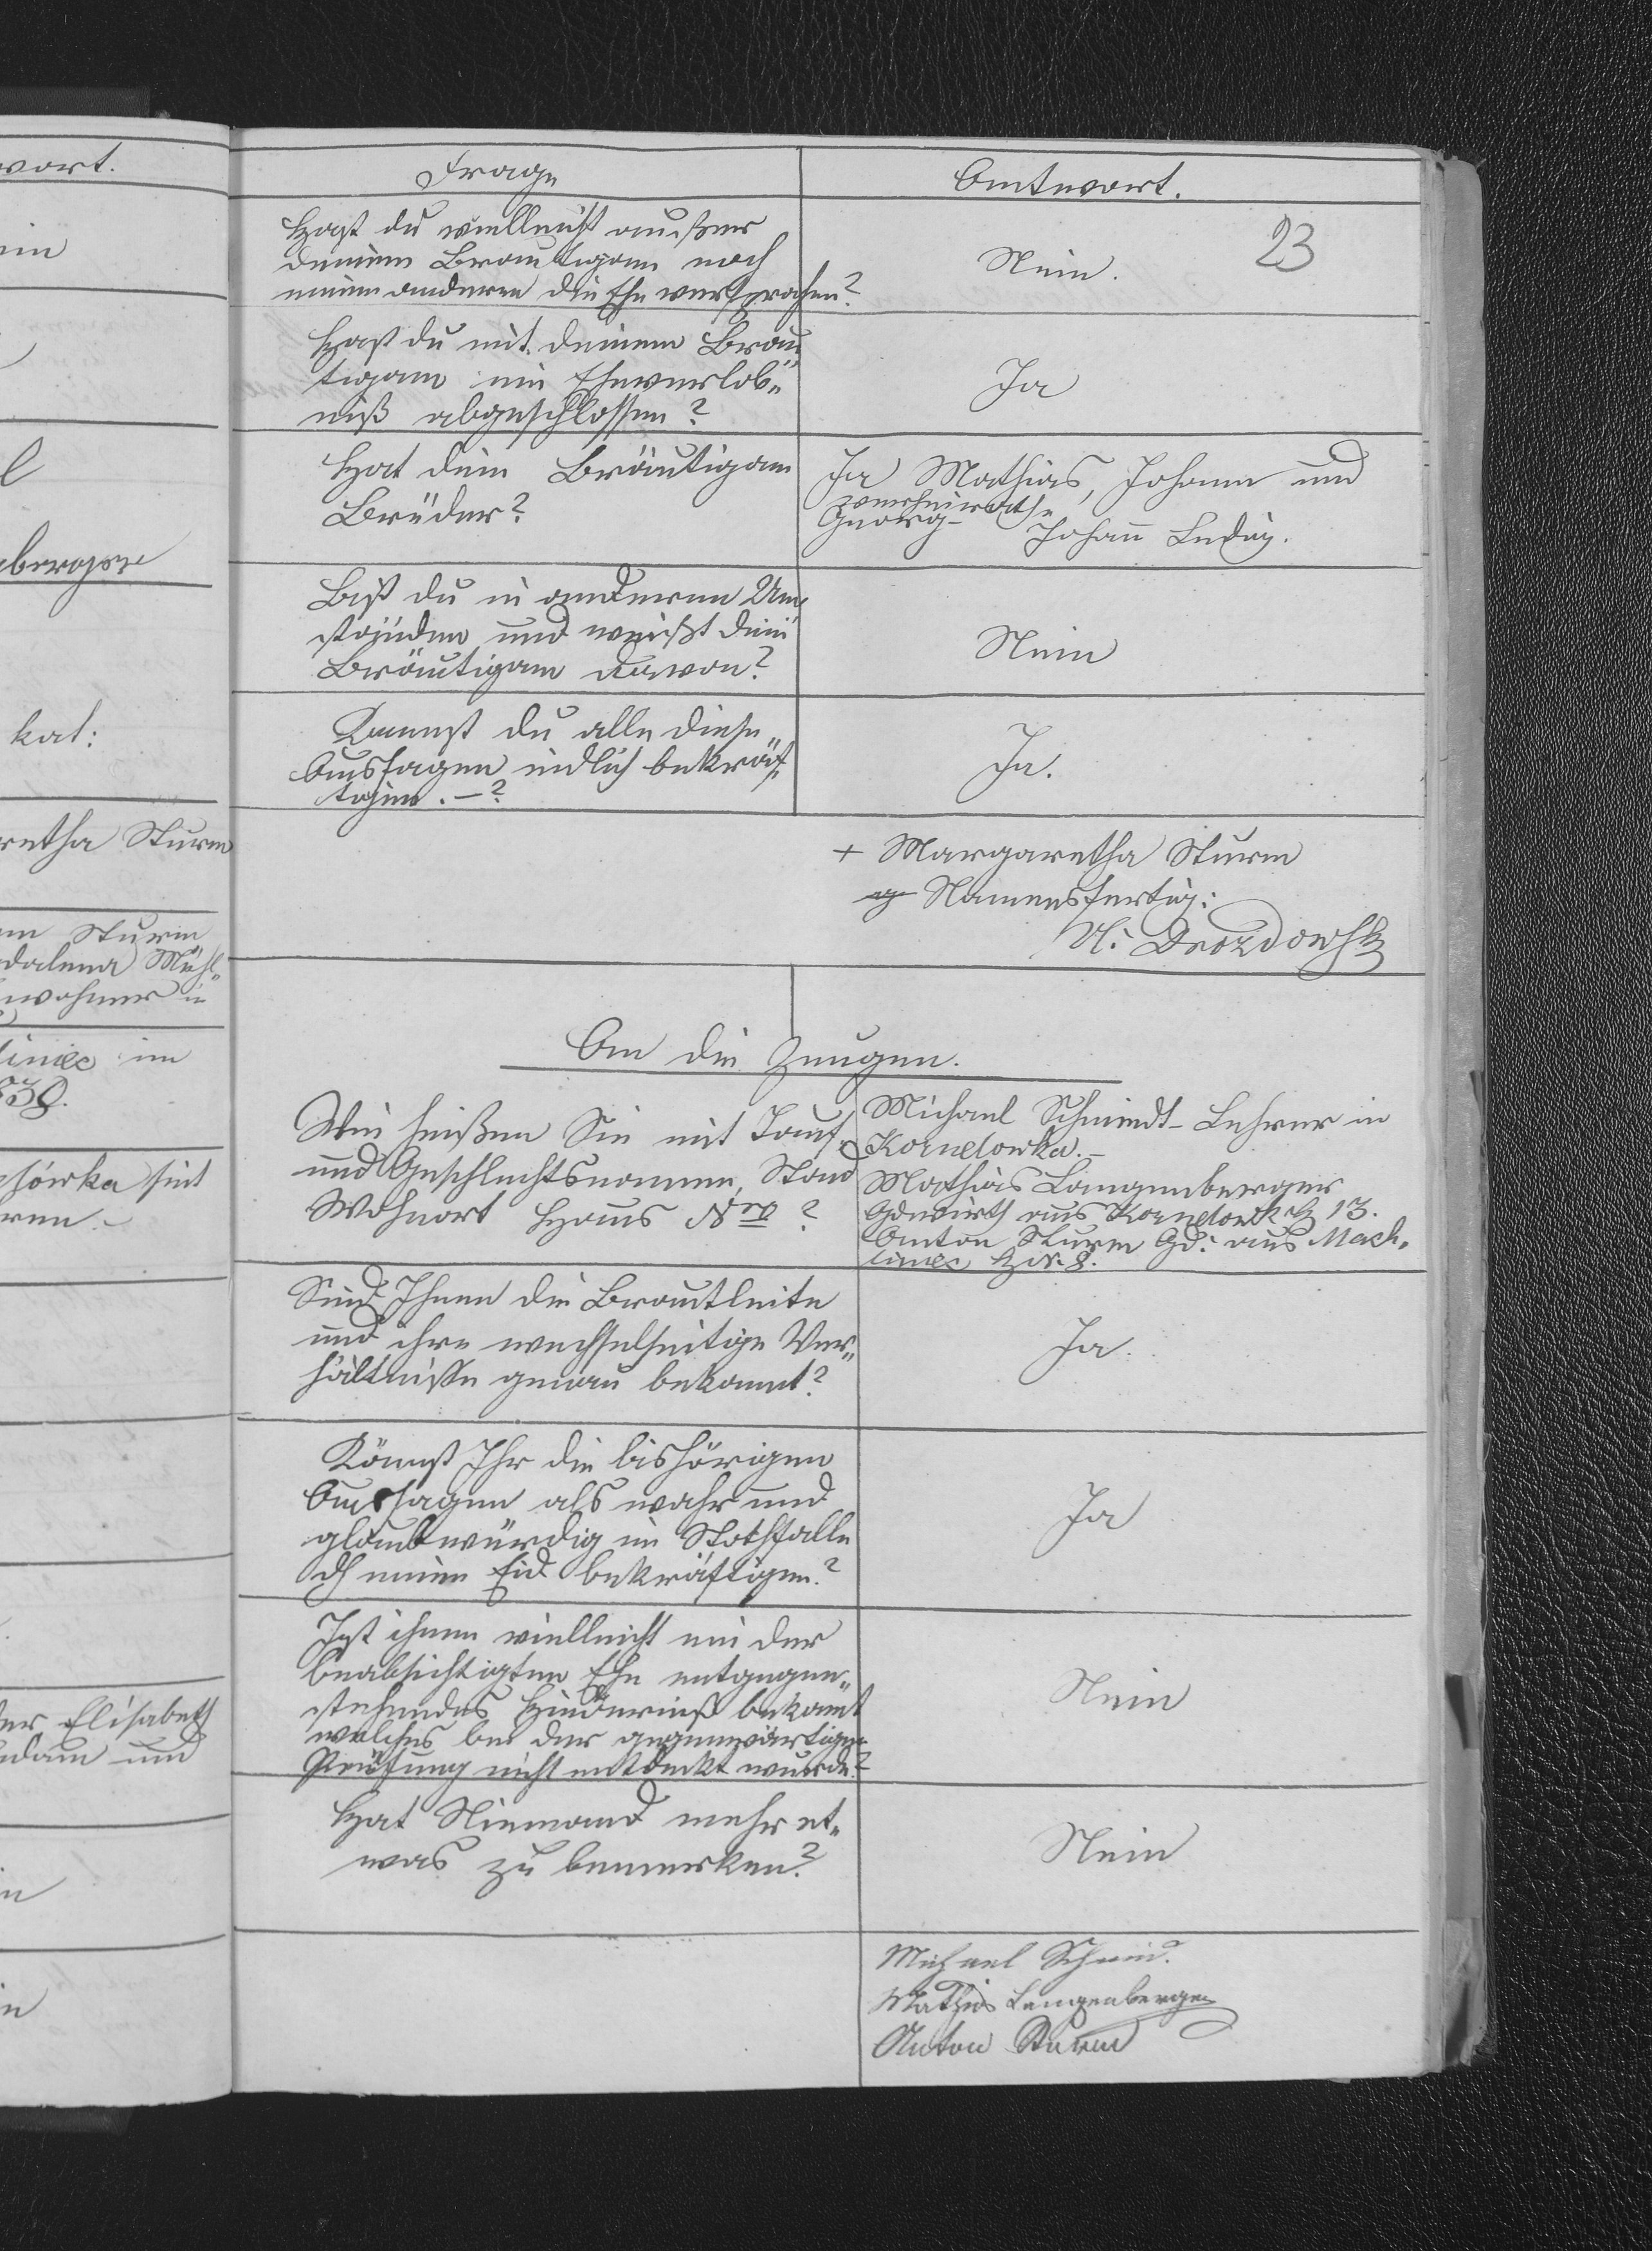 wort.
ein
l
nberger
kat:
retha Sturm
m Sturm
dalena Mühl„
wohner in
liniec im
839.
sówka seit
ren.-
ter Elisabeth
Adam und
in
in
Frage
Antwort.
23
Hast du vielleicht außer
deinem Brautigam noch
einem anderen die Ehe versprochen?
Nein.
Hast du mit deinem Bräu„
tigam ein Eheverlob„
niß abgeschlossen?
Ja
Hat dein Bräutigam
Brüder?
Ja Mathias, Johann und
verheirathe
Georg- Johann Ledig.
Bist du in anderen Um„
ständen und weißt dein
Bräutigam davon?
Nein
Kannst du alle diese
Aussagen eidlich bekräf„
tigen.-?
Ja.
+ Margaretha Sturm
Namensfertig:
N: Drozdowski
An die Zeugen.
Wie heißen Sie mit Tauf„
und Geschlechtsnamen, Stand
Wohnort Haus Nro?
Michael Schmidt- Lehrer in
Kornelowka.-
Mathias Langenberger
Gdwirth aus Kornelowka 13.
Anton Sturm Gd: aus Mach„
liniec H N. 8.
Sind Ihnen die Brautleite
und ihre wechselseitige Ver„
hältnisse genau bekannt?
Ja.
Könnst Ihr die bishörigen
Aussagen als wahr und
glaubwürdig im Nothfalle
dh einen Eid bekräftigen?
Ja
Ist ihnen vielleicht ein der
beabsichtigten Ehe entgegen„
stehendes Hinderniß bekannt
welches bei der gegenwärtigen
Prüfung nicht entdeckt wurde?
Nein
Hat Niemand mehr et„
was zu bemerken?
Nein
Michael Schmid.
Mathias Langenberger
Anton Sturm